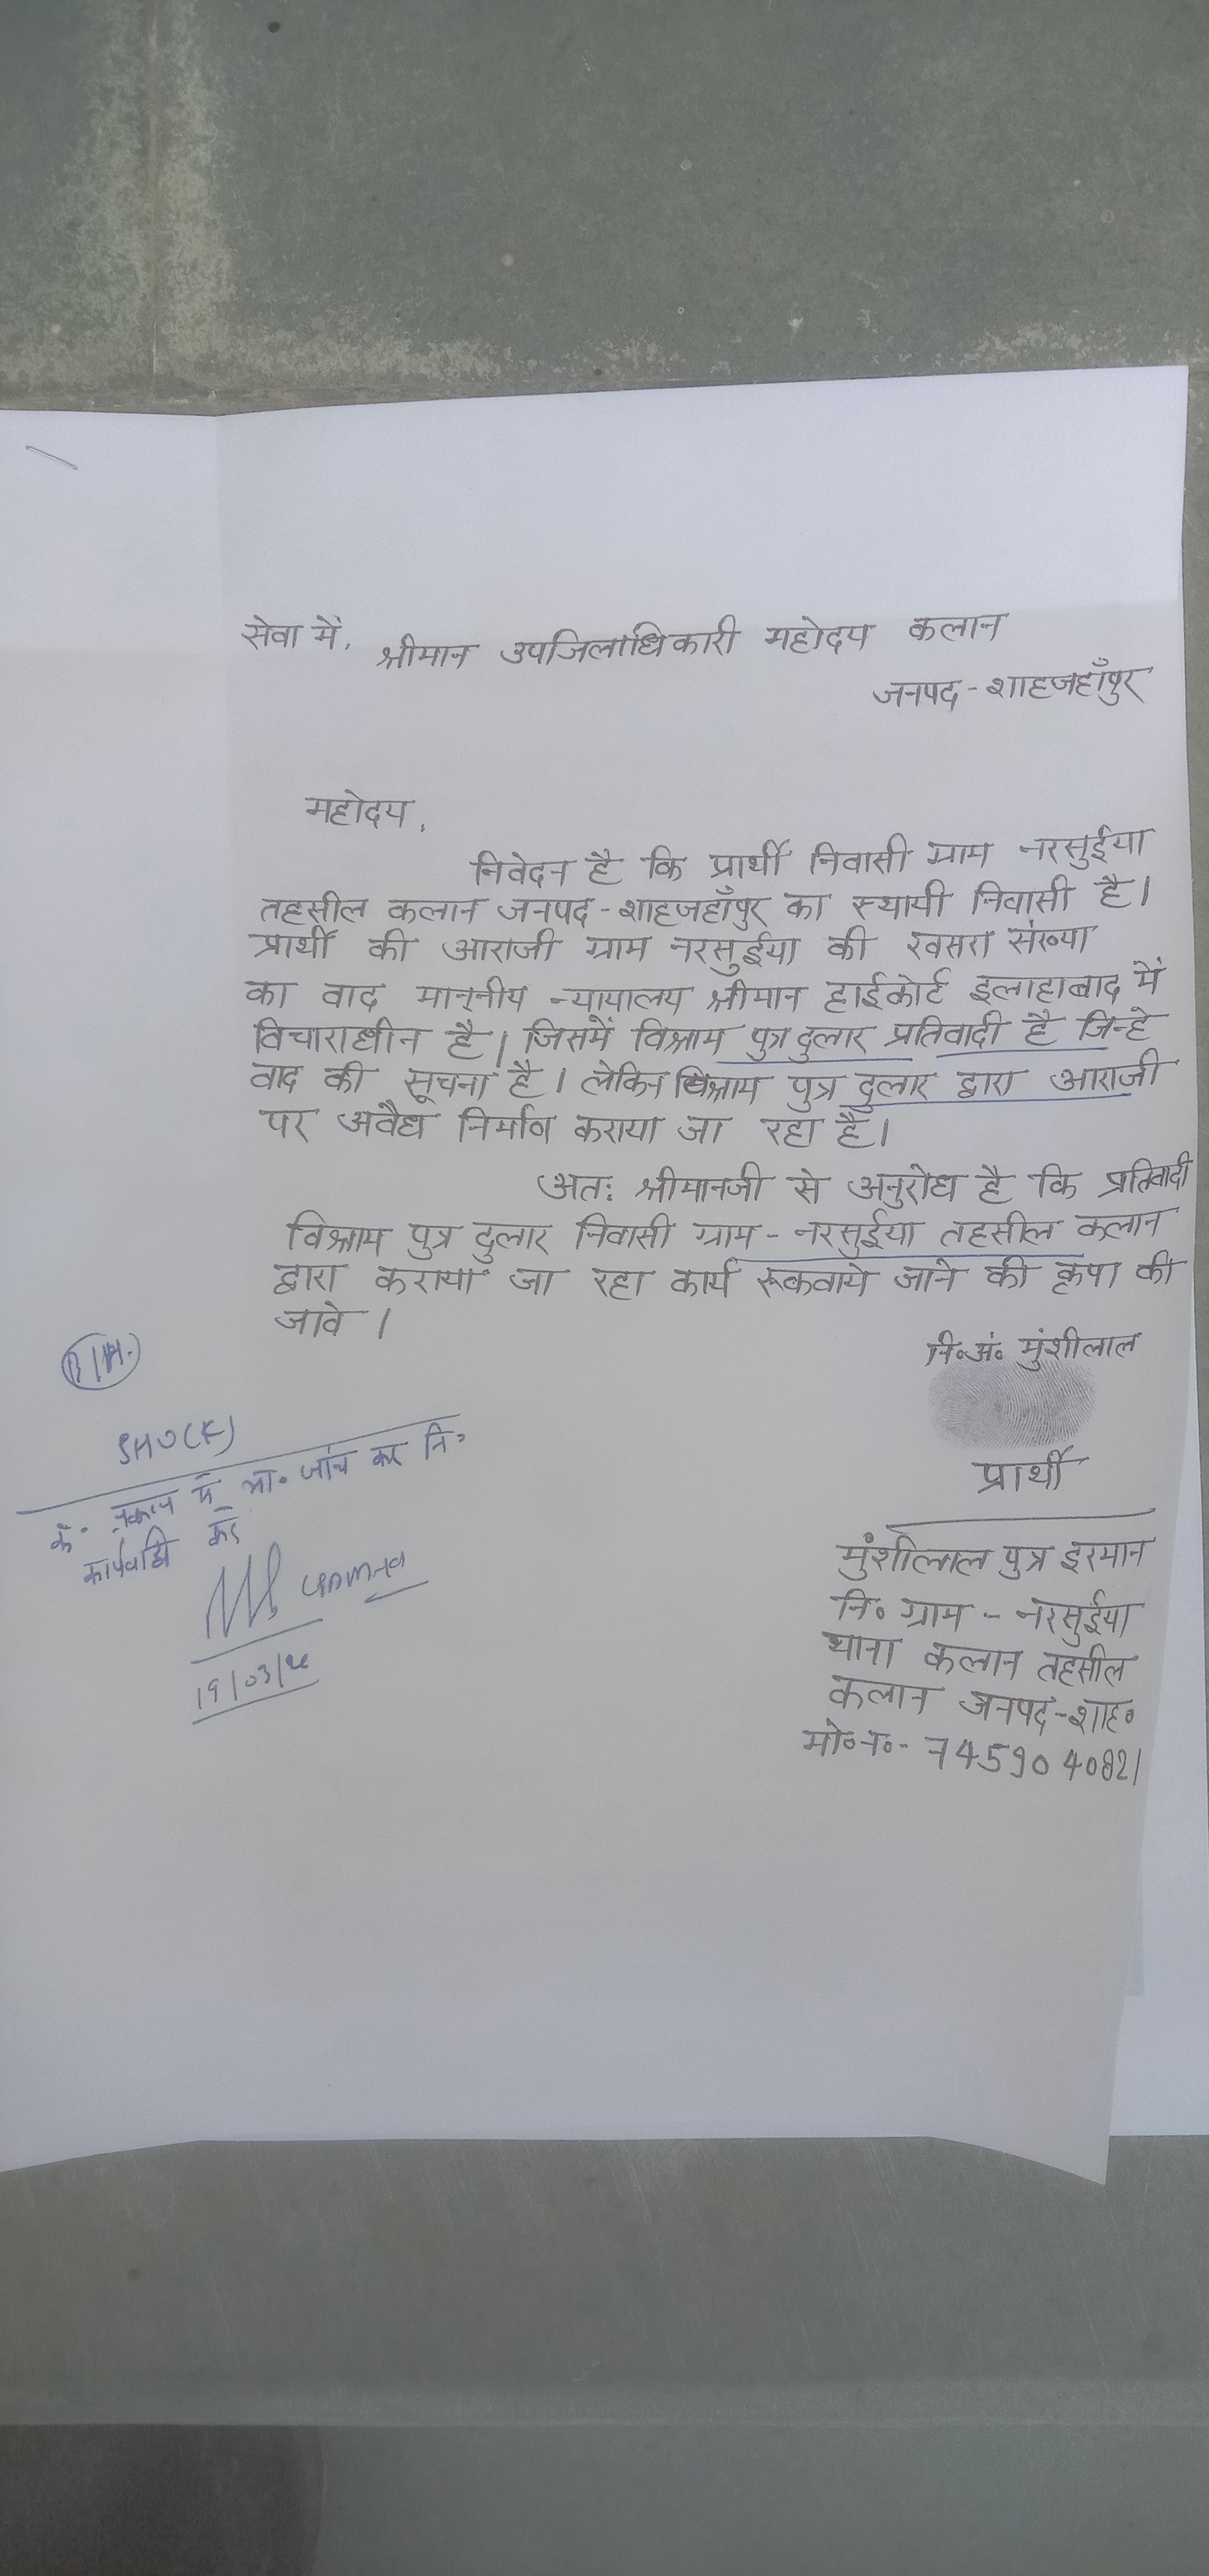 सेवा में, श्रीमान उपजिलाधिकारी महोदय कलान
जनपद - शाहजहाँपुर
महोदय,
निवेदन है कि प्रार्थी निवासी ग्राम नरसुईया
तहसील कलान जनपद - शाहजहाँपुर का स्थायी निवासी है।
प्रार्थी की आराजी ग्राम नरसुईया की खसरा संख्या
का वाद माननीय न्यायालय श्रीमान हाईकोर्ट इलाहाबाद में
विचाराधीन है। जिसमें विश्राम पुत्र दुलार प्रतिवादी है जिन्हे
वाद की सूचना है। लेकिन विश्राम पुत्र दुलार द्वारा आराजी
पर अवैध निर्माण कराया जा रहा है।
अतः श्रीमानजी से अनुरोध है कि प्रतिवादी
विश्राम पुत्र दुलार निवासी ग्राम - नरसुईया तहसील कलान
द्वारा कराया जा रहा कार्य रूकवाये जाने की कृपा की
जावे।
नि॰अं॰ मुंशीलाल
प्रार्थी
मुंशीलाल पुत्र इरमान
नि॰ ग्राम - नरसुईया
थाना कलान तहसील
कलान जनपद - शाह॰
मो॰न॰- 7459040821
SHO(K)
जांच कर नि॰
कार्यवाही करें
19/03/